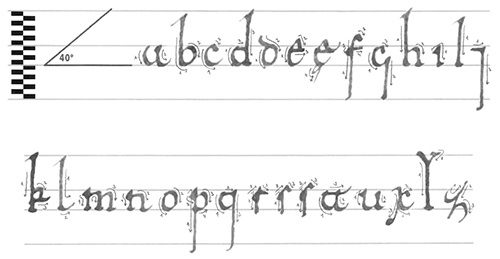 40° abcdꝺeęfghılj
klmnopqrſſτuxyz